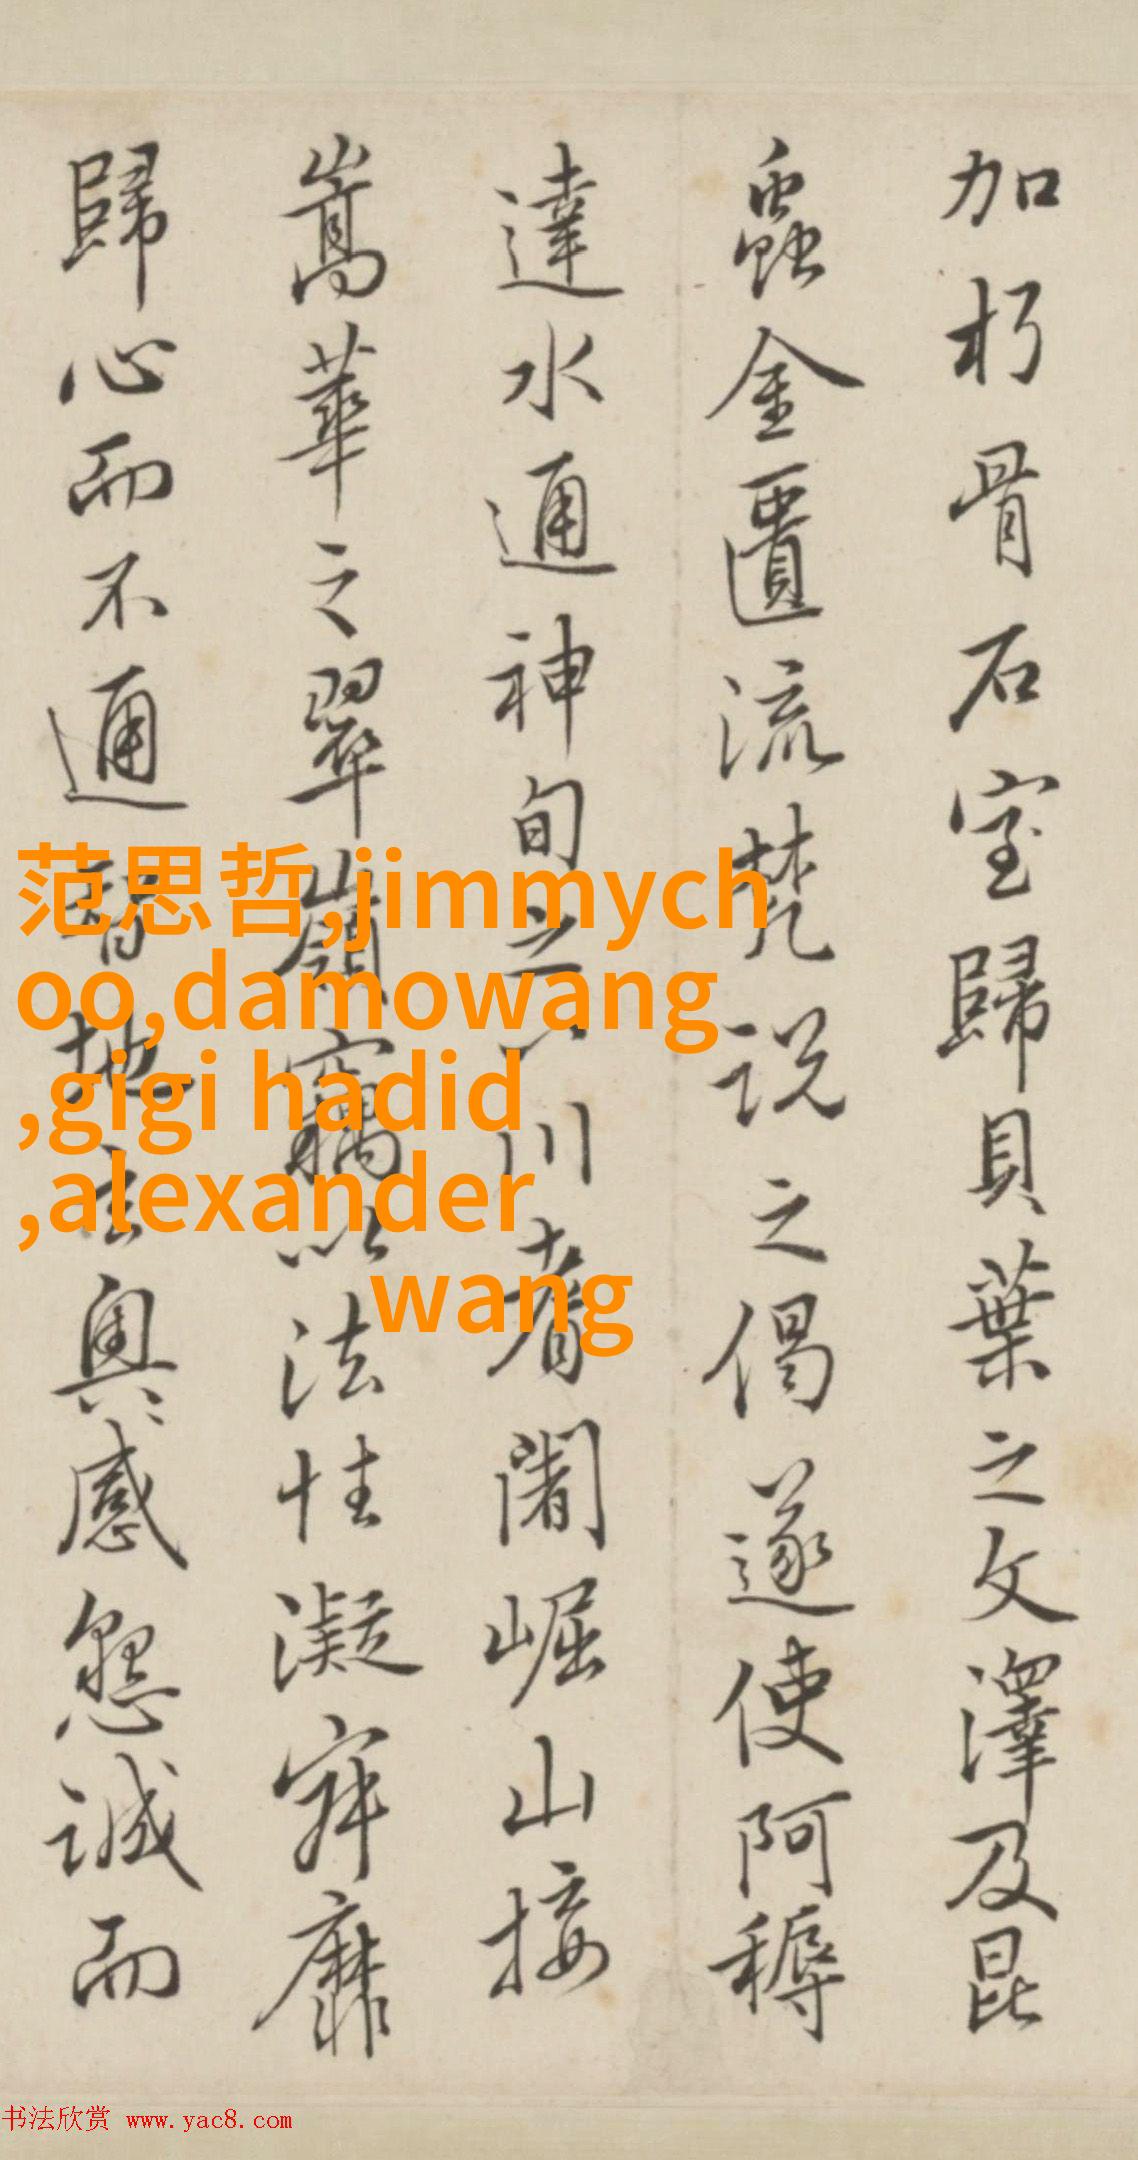 加朽骨石室歸貝葉之文澤及昆
蟲金匱流梵說之偈遂使阿耨
達水通神甸之八川耆闍崛山接
嵩華之翠嶺竊以法性凝寂靡
歸心而不通智地玄奧感懇誠而
范思哲,jimmych
oo,damowang
,gigi hadid
,alexander
wang
书法欣赏 www.yac8.com